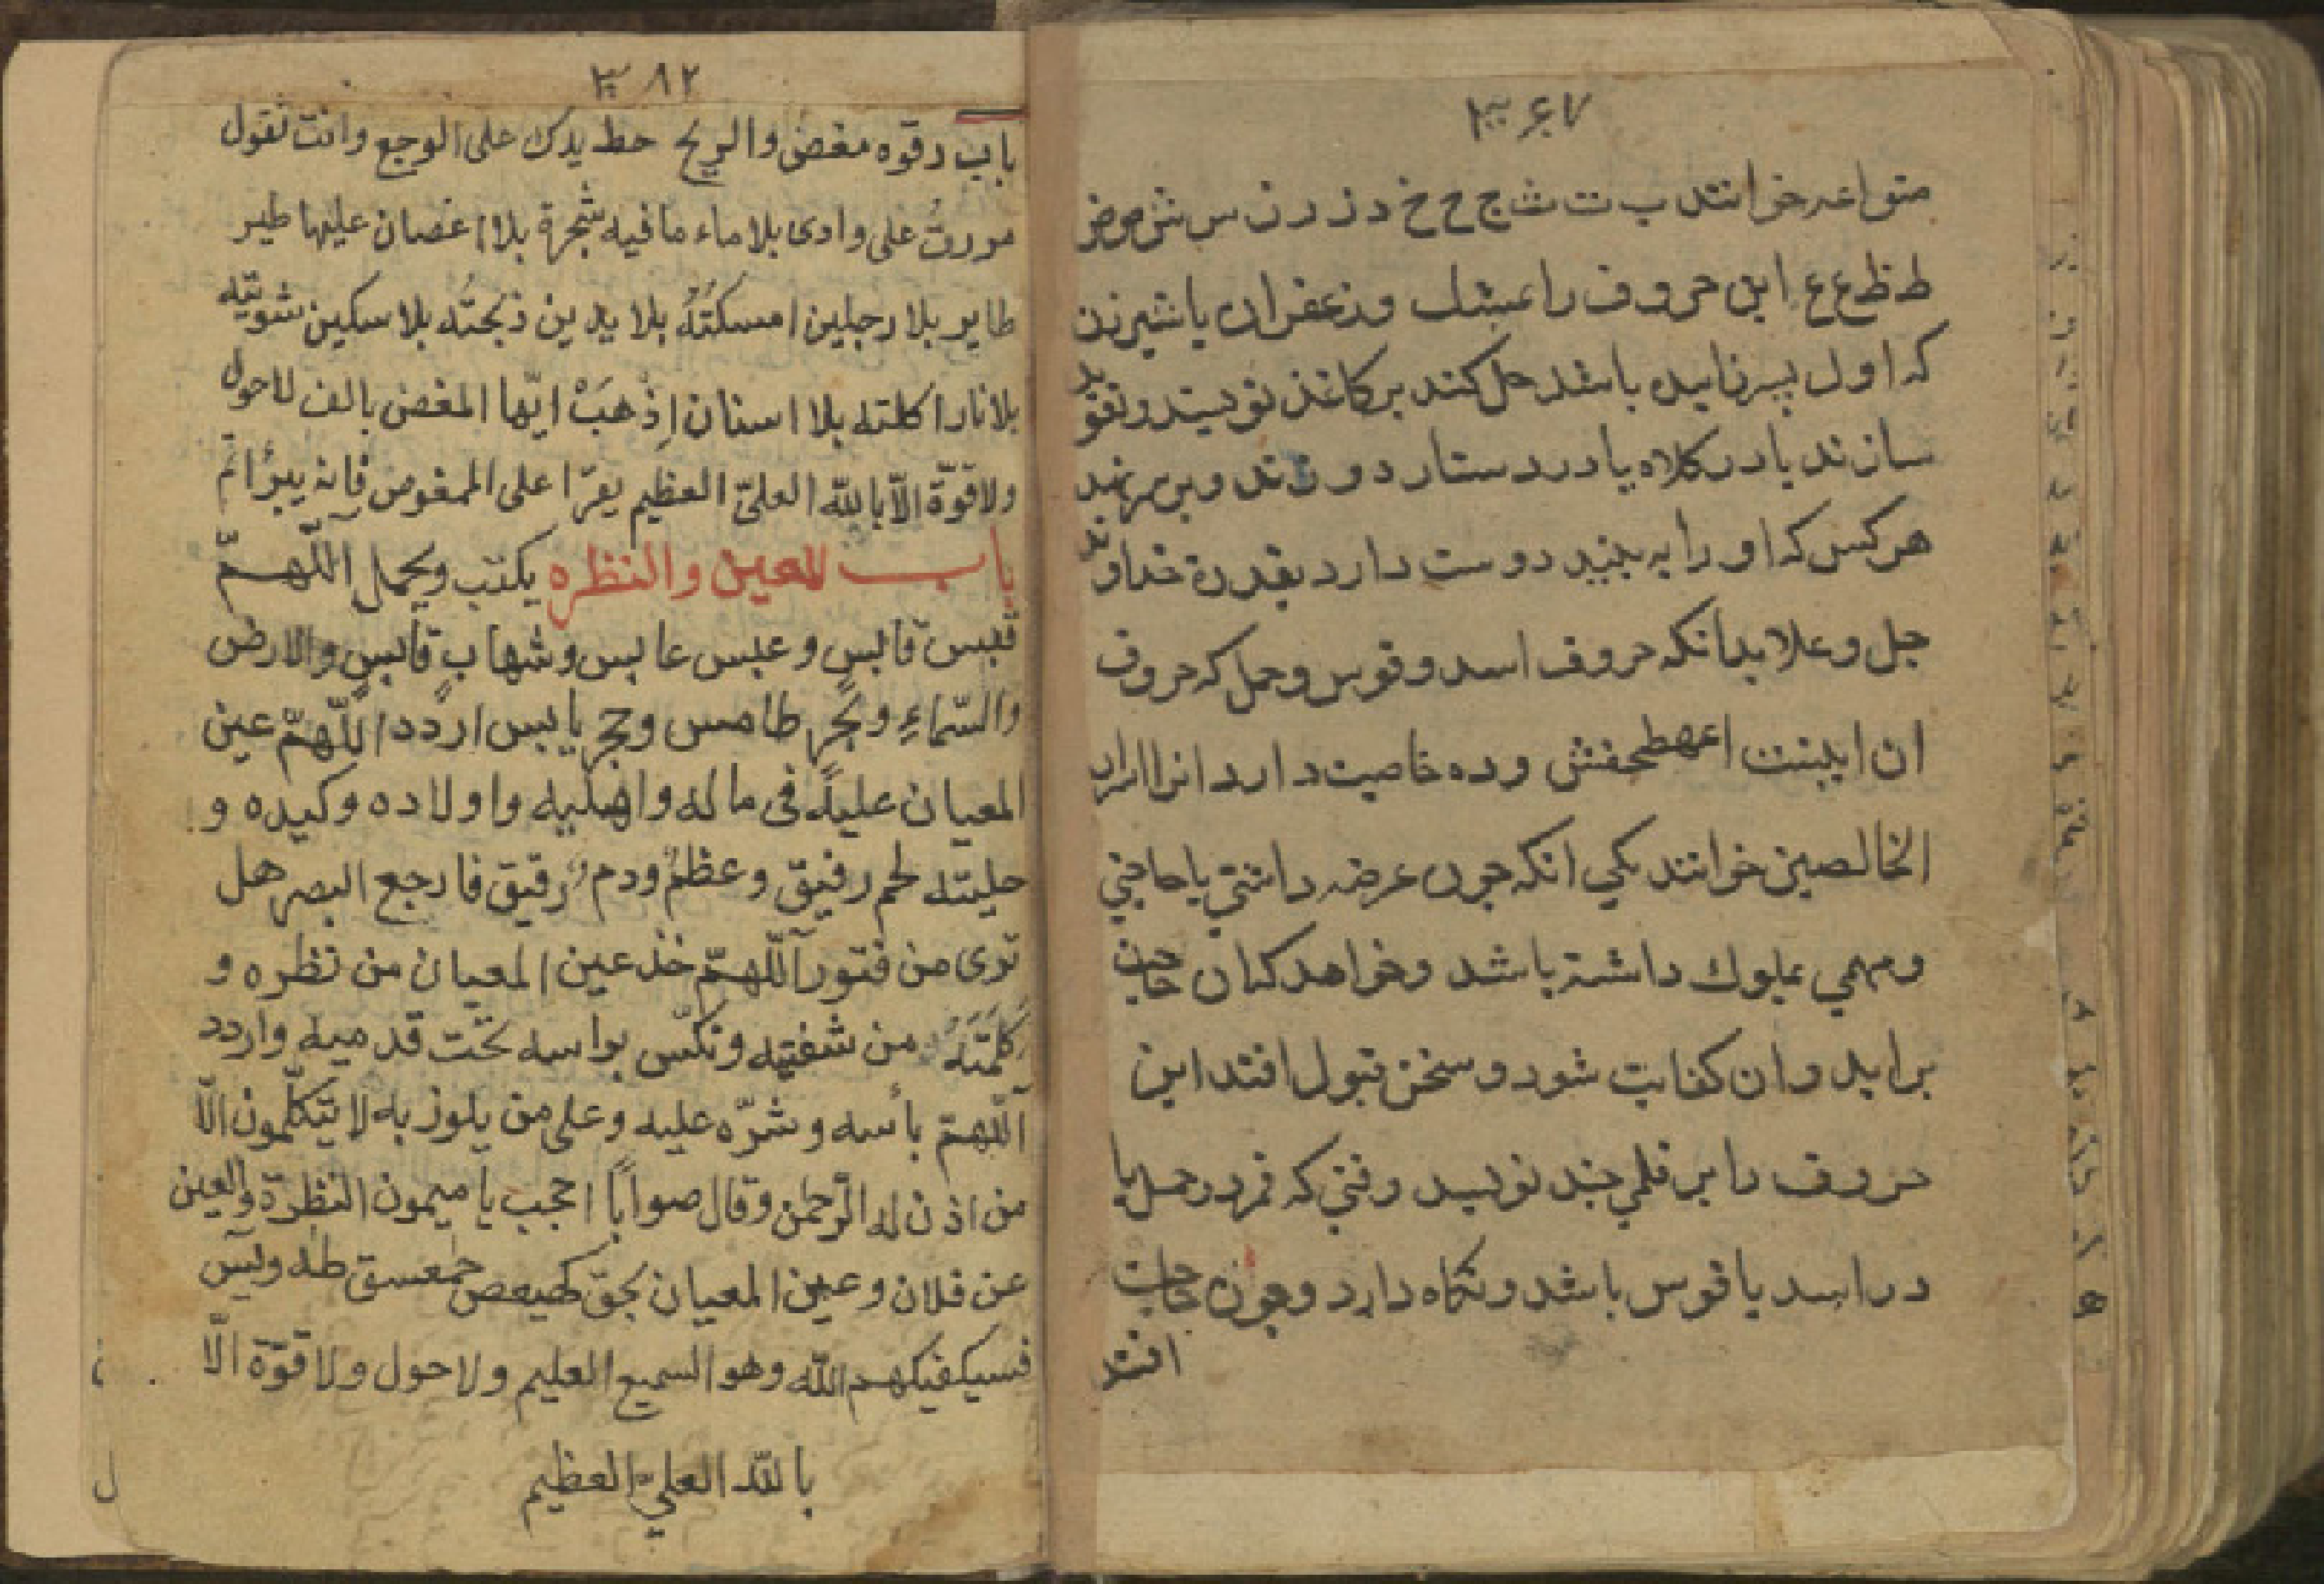 ٣٦٧
متواعه خوانند ب ت ث ج ح خ د ذ ر ز س ش ص ض
ط ظ ع غ این حروف را عشك وزعفران یا شیرزن
که اول پسر زاییده باشد حل کند بر کاغذ نویسد وتعوید
سازند یا در کلاه یا در دستار دوزند و بر سر نهند
هرکس که او را به بیند دوست دارد بقدرة خداوند
جل وعلا بدانکه حروف اسد وقوس وحمل که حروف
ان اینست اعهطحفش وده خاصیت دارد انرا
الخالصین خوانند یکی انکه چون عرضه داشتی یا حاجتی
ومهمی بملوك داشته باشد وخواهد کان حاجت
براید وان کفایت شود وسخن قبول افتد این
حروف را بر قلمی چند نویسد وقتی که قمر در حمل یا
در اسد یا قوس باشد ونکاه دارد وچون حاجت
افتد
٣٨٢
باب رقوه مغص والریح حط یدك علی الوجع وانت تقول
مررت علی وادی بلا ماء مافیه شجرة بلا اغصان علیها طیر
طایر بلا رجلین امسكتُهُ بلا یدین ذبحتُه بلا سكین شویته
بلا نار اكلته بلا اسنان اِذْهَبْ ایّها المغص بالف لاحول
ولا قوّة الّا بالله العلیّ العظیم یقرا علی الممغوص فانه یبرؤ اتم
باب للعین والنظره یكتب ویحمل اللّهمّ
قبس قابس وعبس عابس وشهاب قابس والارض
والسّماءِ وبحر طامس وحجر یابس اردد اللّهمّ عین
المعیان علیه فی ماله واهلیه واولاده وكیده و
حلیته لحم رفیق وعظم ودم رقیق فارجع البصر هل
تری من فتور اللّهمّ خذ عین المعیان من نظره و
كَلِمَتَهُ من شفتیه ونكّس براسه تحت قدمیه واردد
اللّهمّ بأسه وشرّه علیه وعلی من یلوذ به لا یتكلّمون الّا
من اذن له الرّحمن وقال صواباً احجب یا میمون النظرة والعین
عن فلان وعین المعیان بحقّ كهیعص حمعسق طه ویس
فسیكفیكهم الله وهو السمیع العلیم ولا حول ولا قوّة الّا
بالله العلیّ العظیم